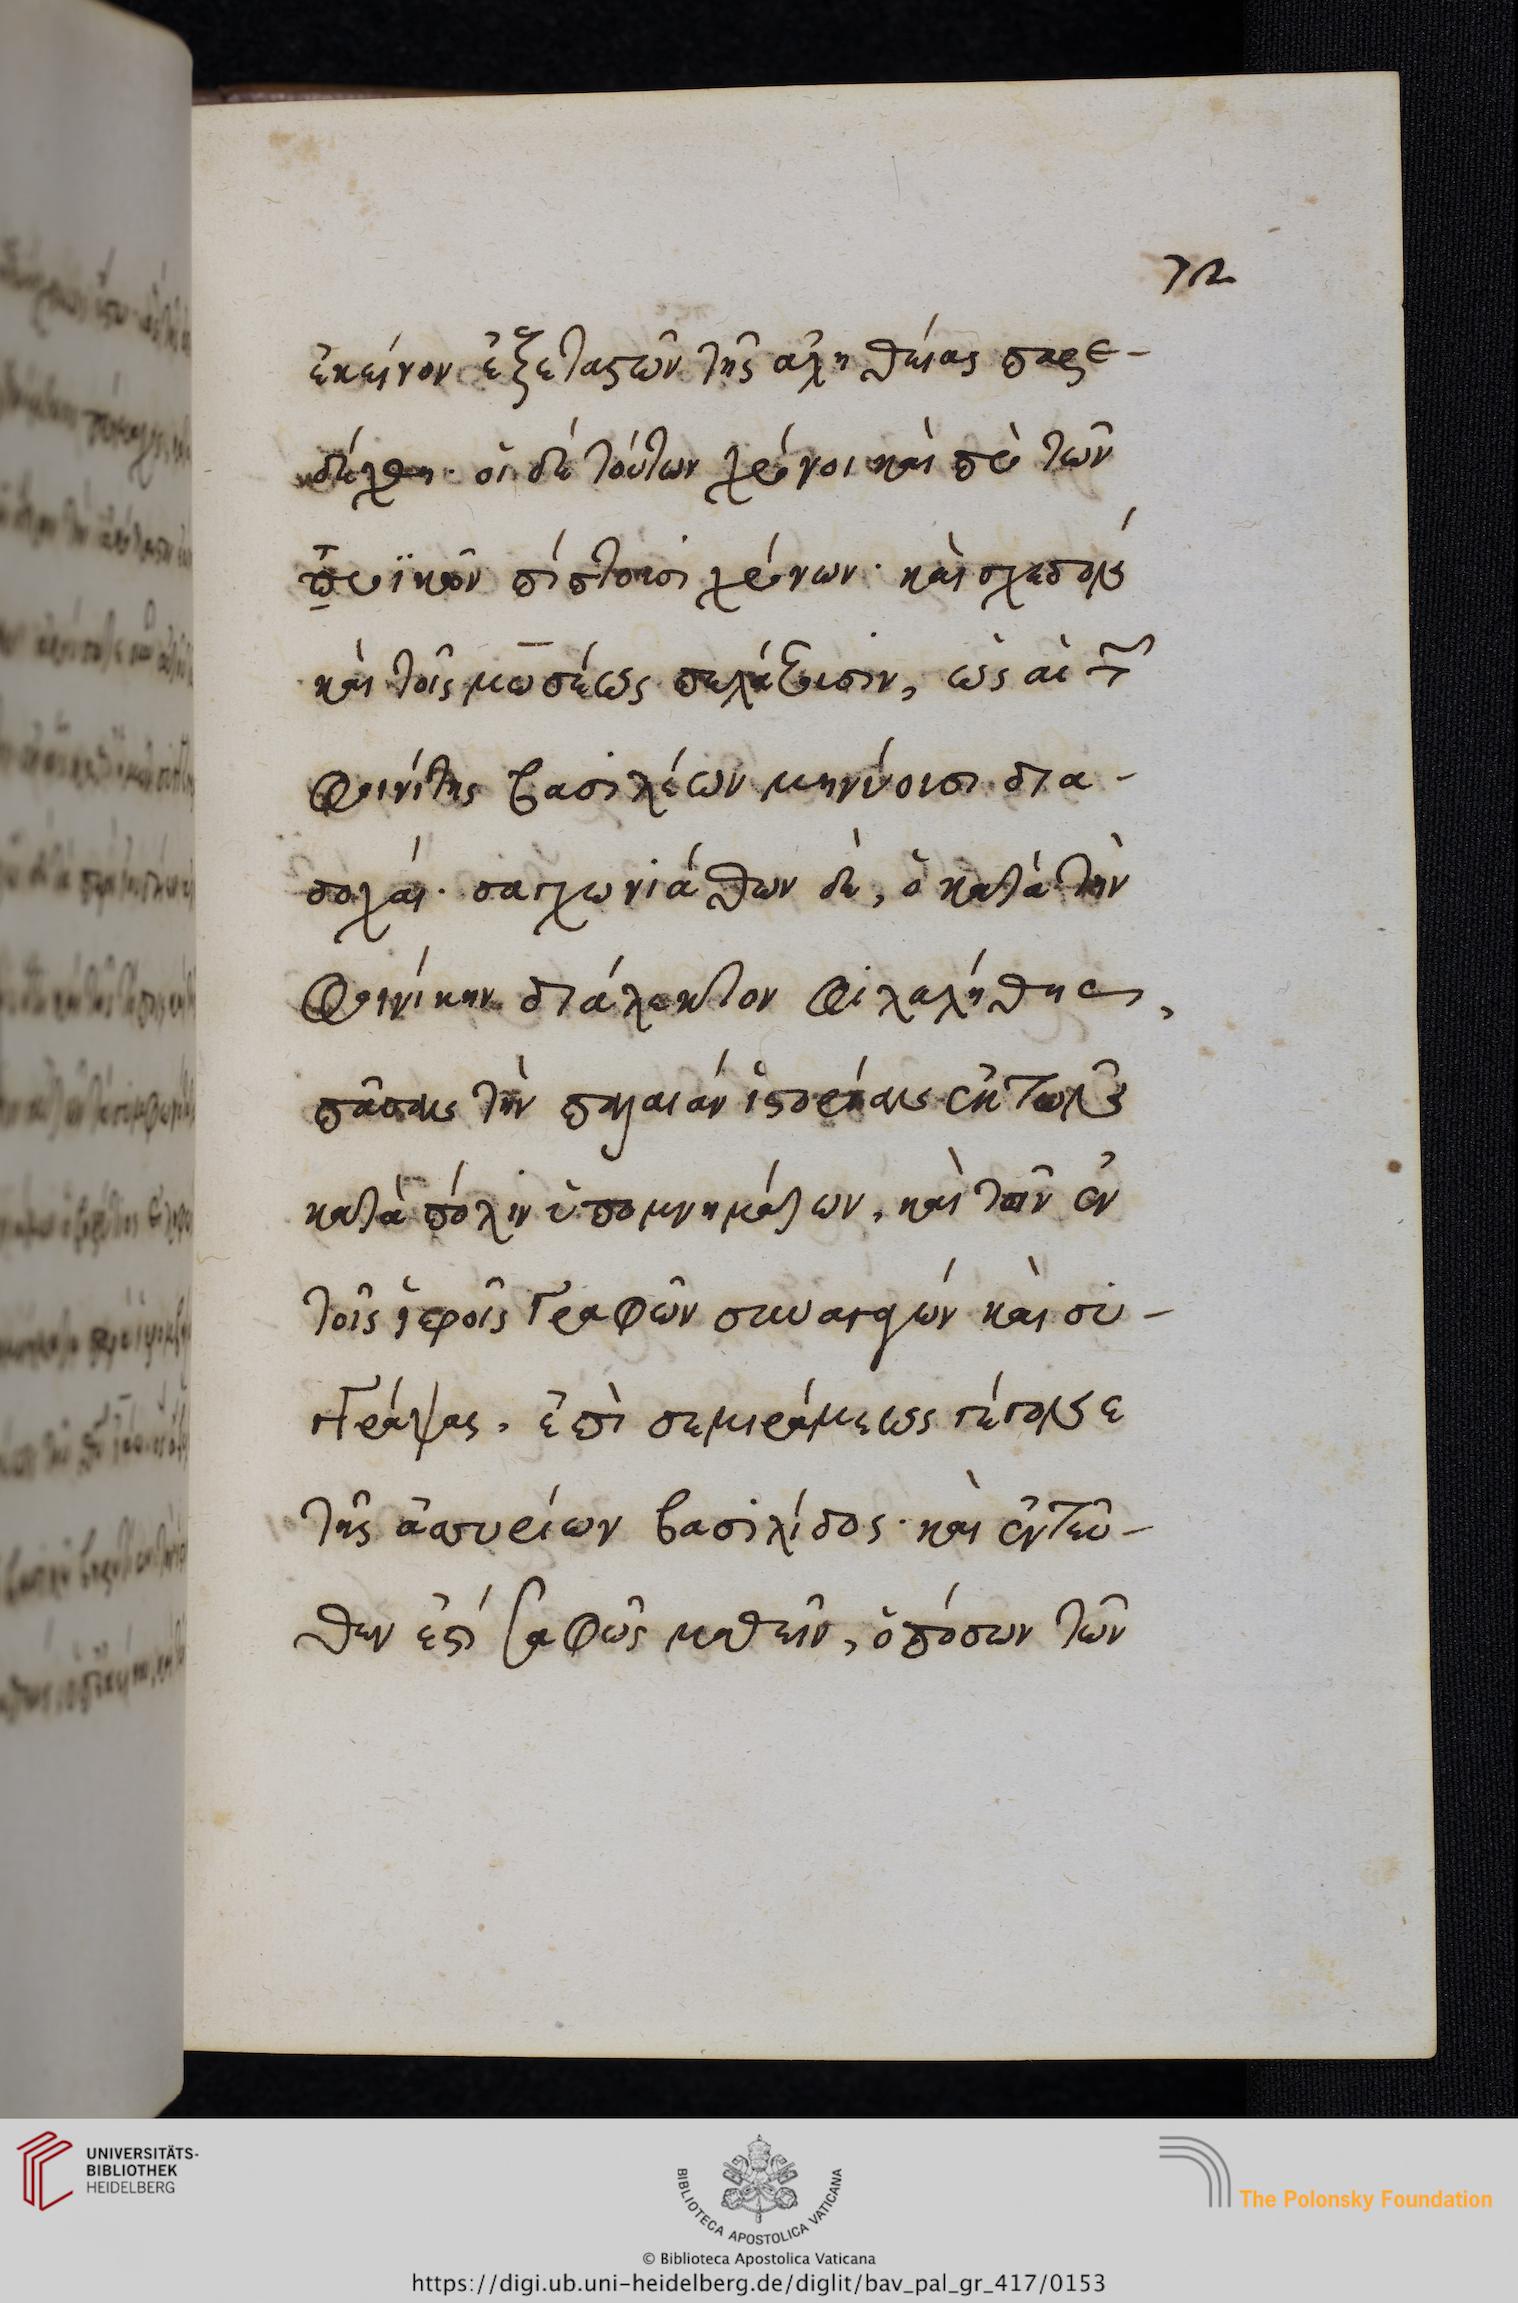 72
ἐκείνον ἐξεταστῶν τῆς ἀληθείας παρε-
δέχθη· οἱ δὲ τούτων χρόνοι καὶ πρὸ τῶν
τρωϊκῶν πίπτουσι χρόνων· καὶ σχεδὸν
καὶ τοῖς μωσέως πελάζουσιν, ὡς αἱ τ῀
φοινίκης βασιλέων μηνύουσι δια-
δοχαί· σαγχωνιάθων δὲ, ὁ κατὰ τὴν
φοινίκην διάλεκτον φιλαλήθης,
πᾶσαν τὴν παλαιὰν ἱστορίαν ἐκ τῶν
κατὰ πόλιν ὑπομνημάτων, καὶ τῶν ἐν
τοῖς ἱεροῖς γραφῶν συναγαγὼν καὶ συ-
γγράψας, ἐπὶ σεμιράμεως γέγονε
τῆς ἀσσυρίων βασιλίδος· καὶ ἐντεῦ-
θεν ἐστί σαφῶς μαθεῖν, ὁπόσων τῶν
UNIVERSITÄTS-
BIBLIOTHEK
HEIDELBERG
BIBLIOTECA APOSTOLICA VATICANA
The Polonsky Foundation
© Biblioteca Apostolica Vaticana
https://digi.ub.uni-heidelberg.de/diglit/bav_pal_gr_417/0153